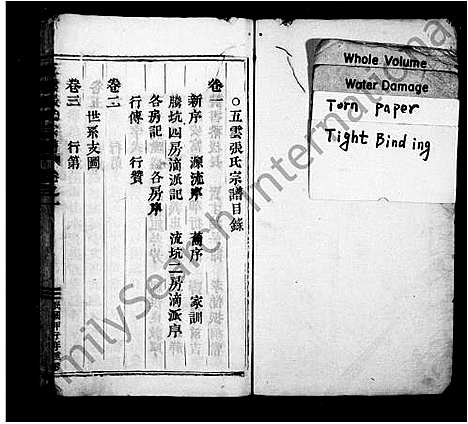 ○五雲張氏宗譜目錄
卷一
新序 源流序 舊序 家訓
騰坑四房滴派記 流坑二房滴派序
各房記 各房序
行傳 行贊
卷二
世系支圖
卷三
行第
Whole Volume
Water Damage
Torn Paper
Tight Binding
FamilySearch International